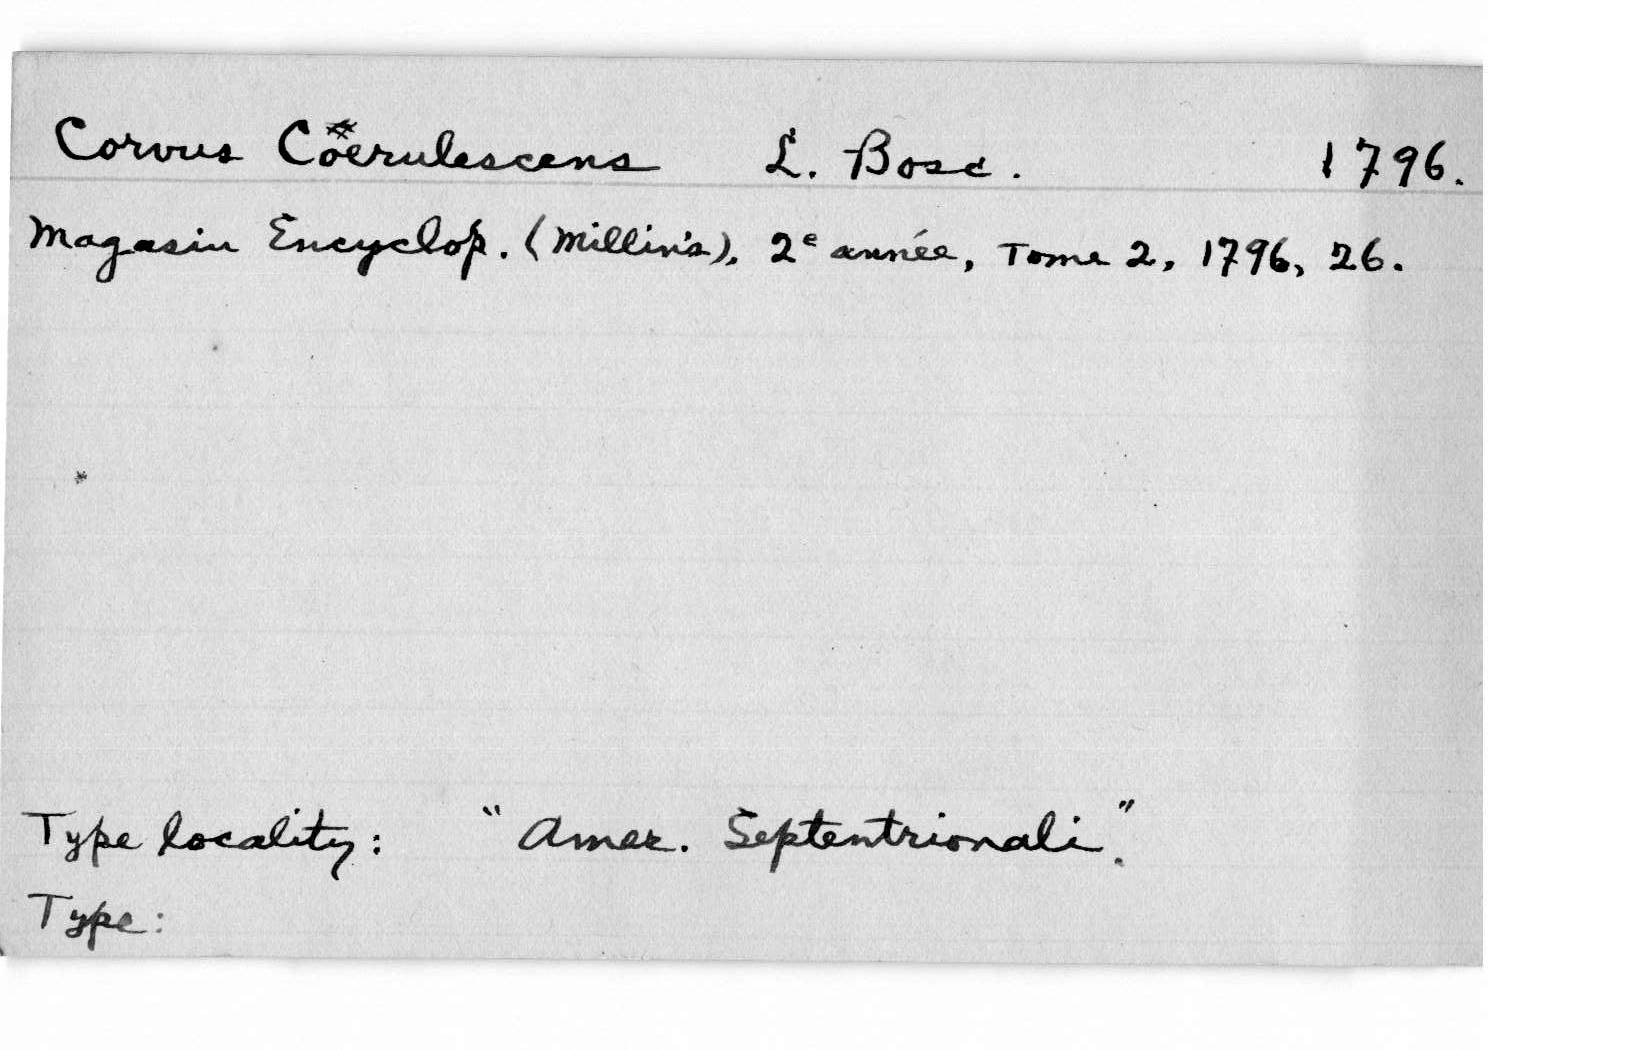 Corvus Coerulescens L. Bosc. 1796.
Magasin Encyclop. (Millin's), 2e année, Tome 2, 1796, 26.
Type locality: "Amer. Septentrionali."
Type: